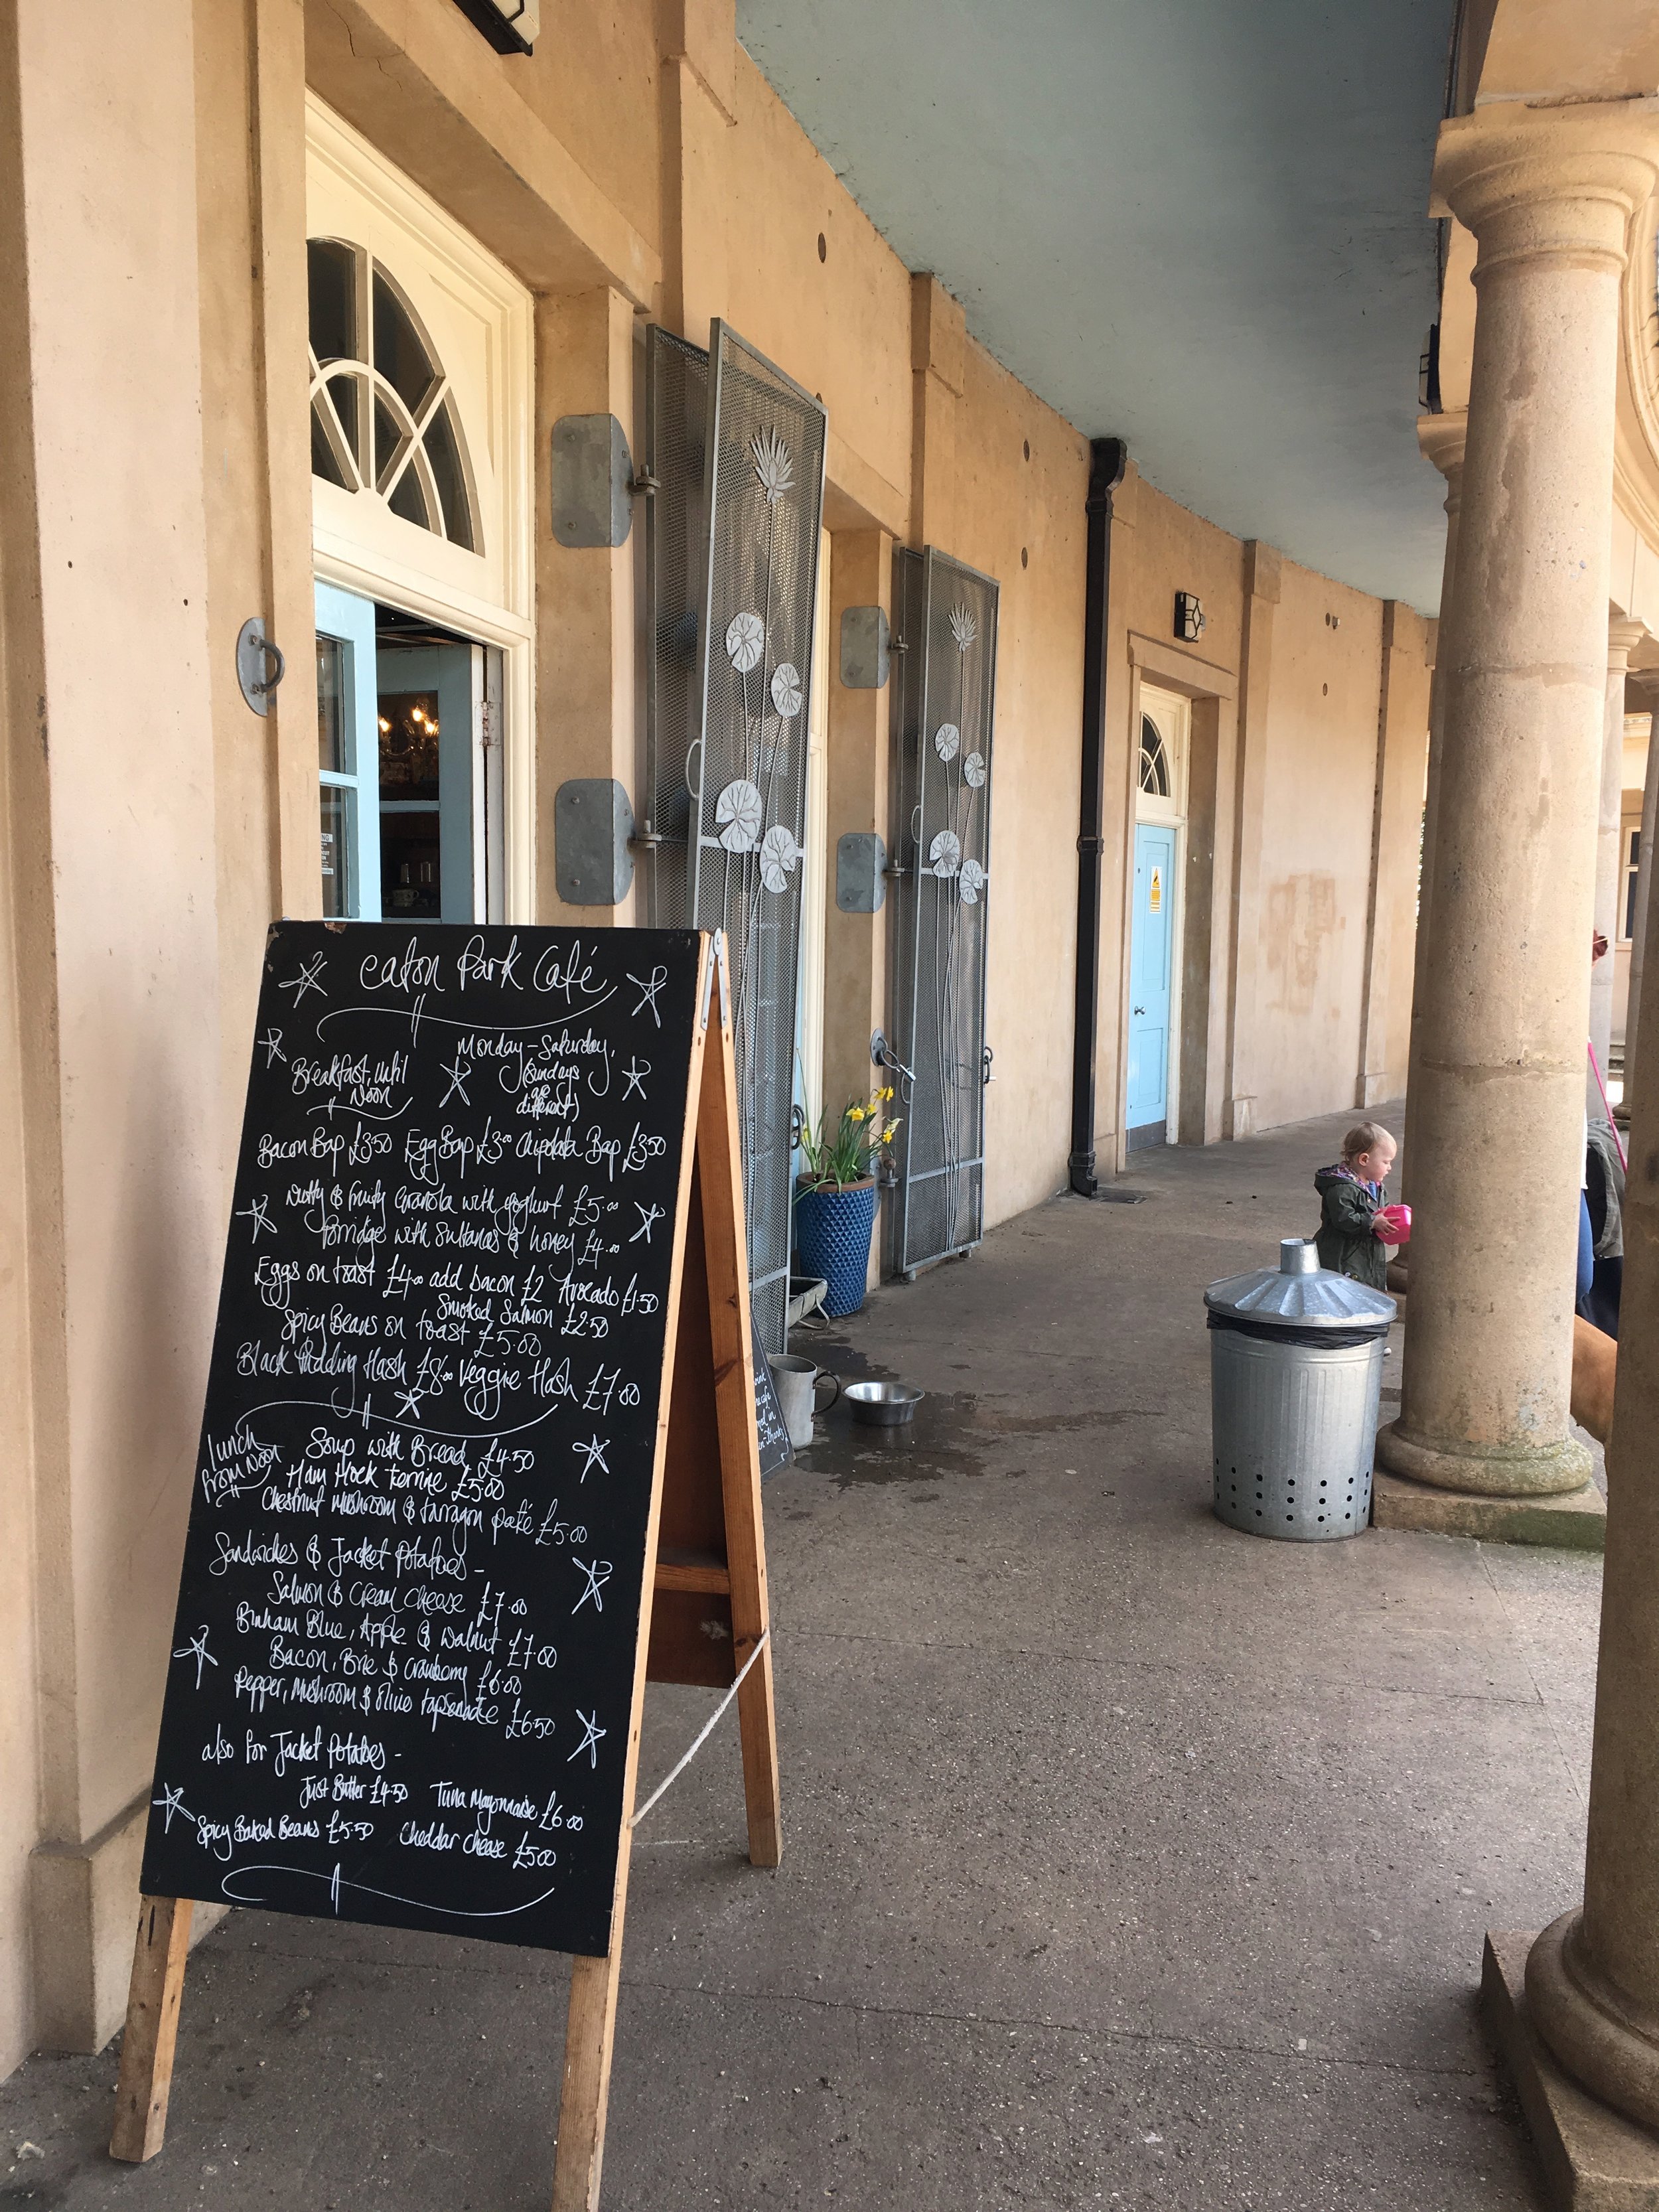 eaton Park Café
Breakfast, until
Noon
Monday - Saturday,
(Sundays
are
different)
Bacon Bap £3.50 Egg Bap £3.00 Chipolata Bap £3.50
Nutty & fruity Granola with yoghurt £5.00
Porridge with Sultanas & honey £4.00
Eggs on toast £4.00 add bacon £2 Avocado £1.50
Smoked Salmon £2.50
Spicy Beans on toast £5.00
Black Pudding Hash £8.00 Veggie Hash £7.00
lunch
from Noon
Soup with Bread £4.50
Ham Hock terrine £5.00
Chestnut Mushroom & tarragon paté £5.00
Sandwiches & Jacket Potatoes -
Salmon & Cream Cheese £7.00
Binham Blue, Apple & Walnut £7.00
Bacon, Brie & Cranberry £6.00
Pepper, Mushroom & Olive tapenade £6.50
also for Jacket Potatoes -
Just Butter £4.50 Tuna Mayonnaise £6.00
Spicy Baked Beans £5.50 Cheddar cheese £5.00